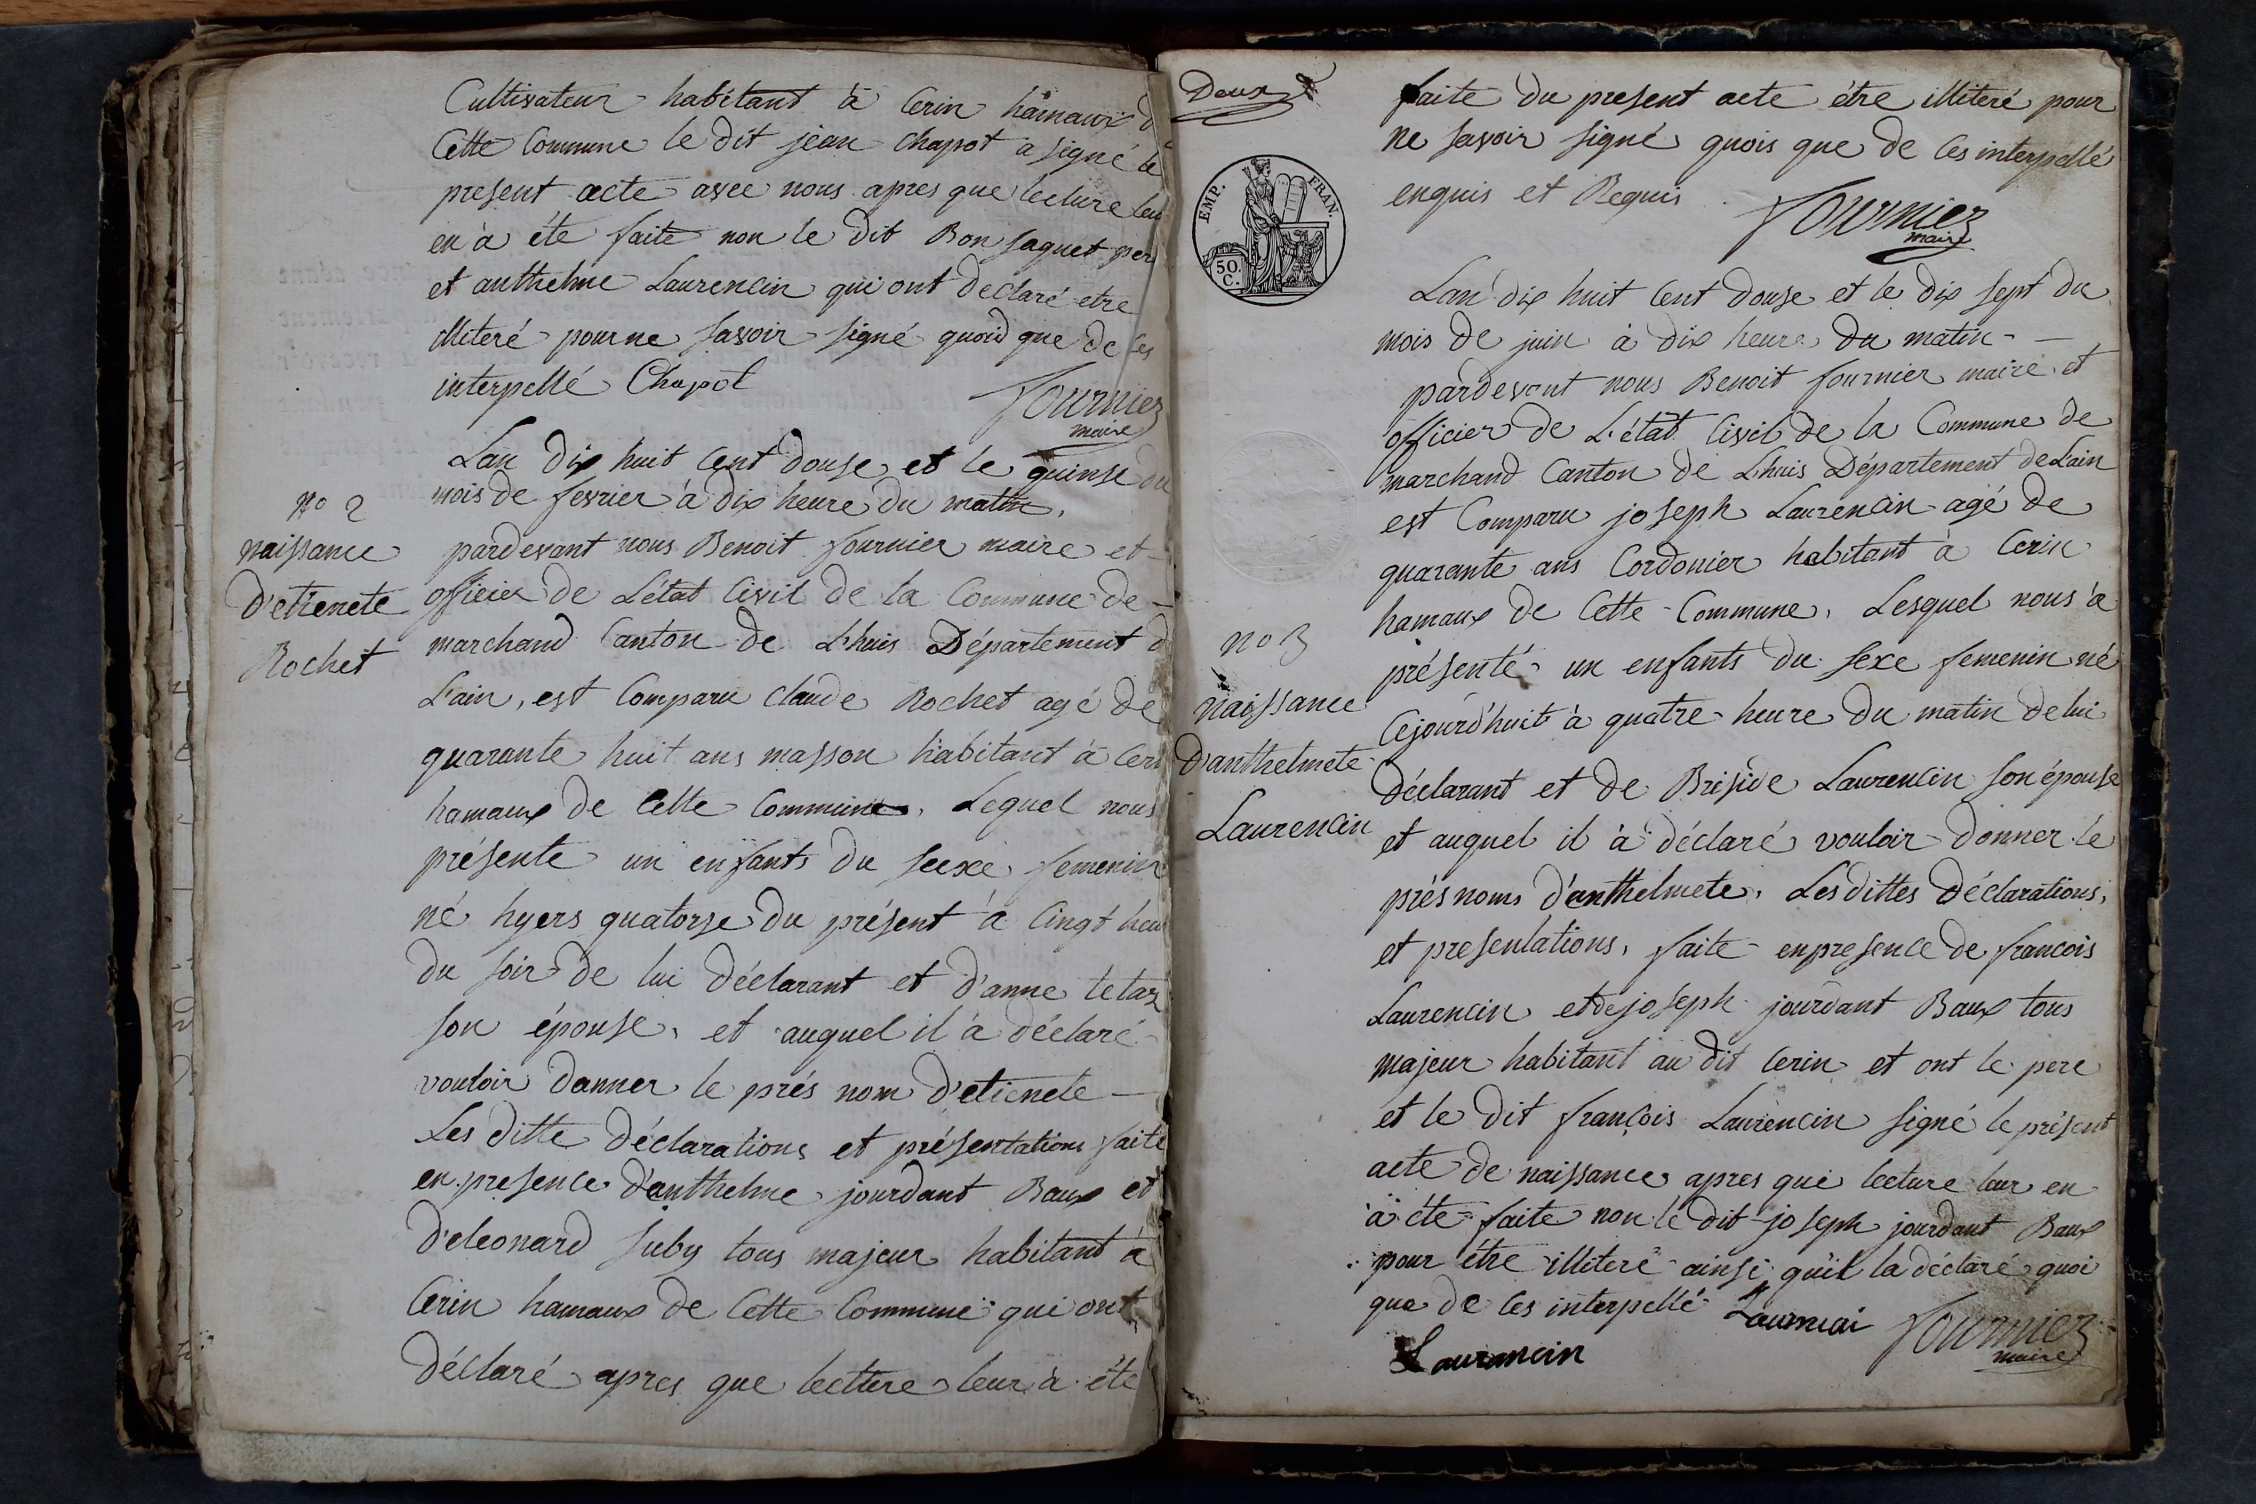 Cultivateur habitant à Cerin hamaux d
Cette Commune le dit jean Chapot a signé le
present acte avec nous apres que lecture leur
en à éte faite non le dit Bon jaquet pere
et anthelme Laurencin qui ont declaré etre
illiteré pour ne savoir signé quoid que de Ces
interpellé Chapot
fournier
maire
no 2
naissance
D'etienete
Rochet
Lan dix huit Cent douse et le quinse du
mois de fevrier à dix heure du matin,
pardevant nous Benoit fournier maire et
officier de L'état Civil de la Commune de
marchand Canton de Lhuis Département d
L'ain, est Comparu Claude Rochet agé de
quarante huit ans masson habitant à Ceri
hamaux de Cette Commune, Lequel nous
présente un enfants du seexe femenin
né hyers quatorse du présent à Cinqt heu
du soir de lui déclarant et d'anne tetaz
son épouse, et auquel il à déclaré
vouloir danner le prés nom d'etienete
Les ditte déclarations et présentations faite
en presence d'anthelme jourdant Baux et
D'eleonard juby tous majeur habitant à
Cerin hamaux de Cette Commune qui ont
déclaré apres que lectture leur à éte
Deux
EMP. FRAN.
50. C.
faite du present acte étre illiteré pour
ne savoir signé quois que de Ces interpellé
enquis et Requis
fournier
maire
no 3
naissance
D'anthelmete
Laurencin
Lan dix huit Cent douse et le dix sept du
mois de juin à dix heure du matin
pardevant nous Benoit fournier maire et
officier de L'état Civil de la Commune de
marchand Canton de Lhuis Département de Lain
est Comparu joseph Laurencin agé de
quarante ans Cordonier habitant à Cerin
hamaux de Cette Commune, Lesquel nous à
présenté un enfants du sexe femenin né
Cejourd'huit à quatre heure du matin de lui
déclarant et de Briside Laurencin son épouse
et auquel il à déclaré vouloir donner le
prés noms d'anthelmete, Les dittes déclarations,
et presentations, faite en presence de francois
Laurencin et de joseph jourdant Baux tous
majeur habitant au dit Cerin et ont le pere
et le dit françois Laurencin signé le présent
acte de naissance apres que lecture leur en
à éte faite non le dit joseph jourdant Baux
pour étre illiteré ainsi qu'il la déclaré quoi
que de Ces interpellé
fournier
maire
Laurancin